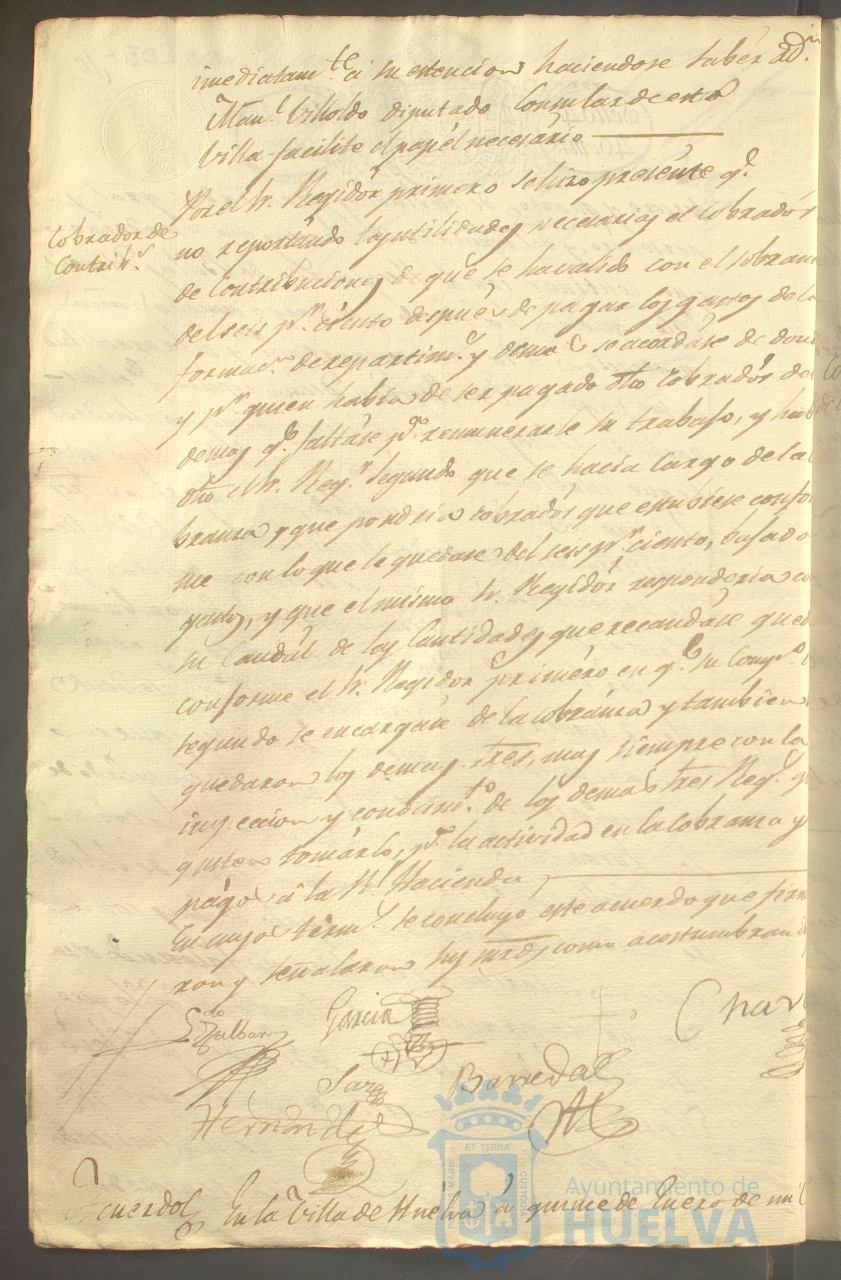 imediatam.te á su estencion haciendose saber á D.n
Man.l Villoldo diputado Consular de esta
Villa facilite el papél necesario
Por el Sr. Regidór primero se hizo presente q.e
Cobrador de
Contrib.s
no reportándo las utilidades necesarias el Cobradór
de Contribuciones de que se ha valido con el sobran
del seis p.r ciento despues de pagar los gastos de la
formac.n de repartim.s y demas se acordáse de don
y p.r quien habia de ser pagado dho Cobradór de
demas q.e faltáse p.a remunerarle su trabajo, y hab
dho el Sr. Reg.r Segundo que se hacia cargo de la
branza, y que pondria cobradór que estubiese confor
me con lo que le quedáse del seis p.r ciento, bajado
gastos, y que el mismo Sr. Regidór responderia co
su Caudál de las Cantidades que recaudáse qued
conforme el Sr. Regidor primero en q.e su Comp.o
segundo se encargáse de la cobránza y tambien
quedaron los demas Sres, mas siempre con la
inspeccion y conocim.to de los demás tres Reg.s q
quieran tomárlo, p.a la actividad en la Cobranza y
págo á la R.l Hacienda
En cuyos térm.s se concluyó este acuerdo que firm
ron y señalaron sus mrds como acostumbran d
Garcia
Char
Barredal
Hernandez
Acuerdo En la Villa de Huélva á quince de Enero de mil
Ayuntamiento de
HUELVA